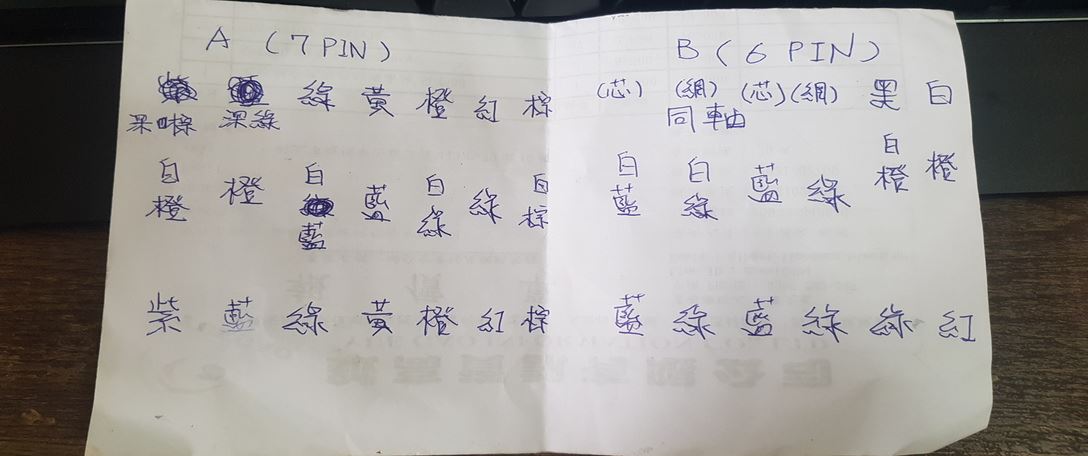 A (7 PIN) B (6 PIN)
綠 黃 橙 紅 棕 (芯) (網) (芯) (網) 黑 白
深綠 同軸
白橙 橙 白藍 藍 白綠 綠 白棕 白藍 白綠 藍 綠 白橙 橙
紫 藍 綠 黃 橙 紅 棕 藍 綠 藍 綠 綠 紅